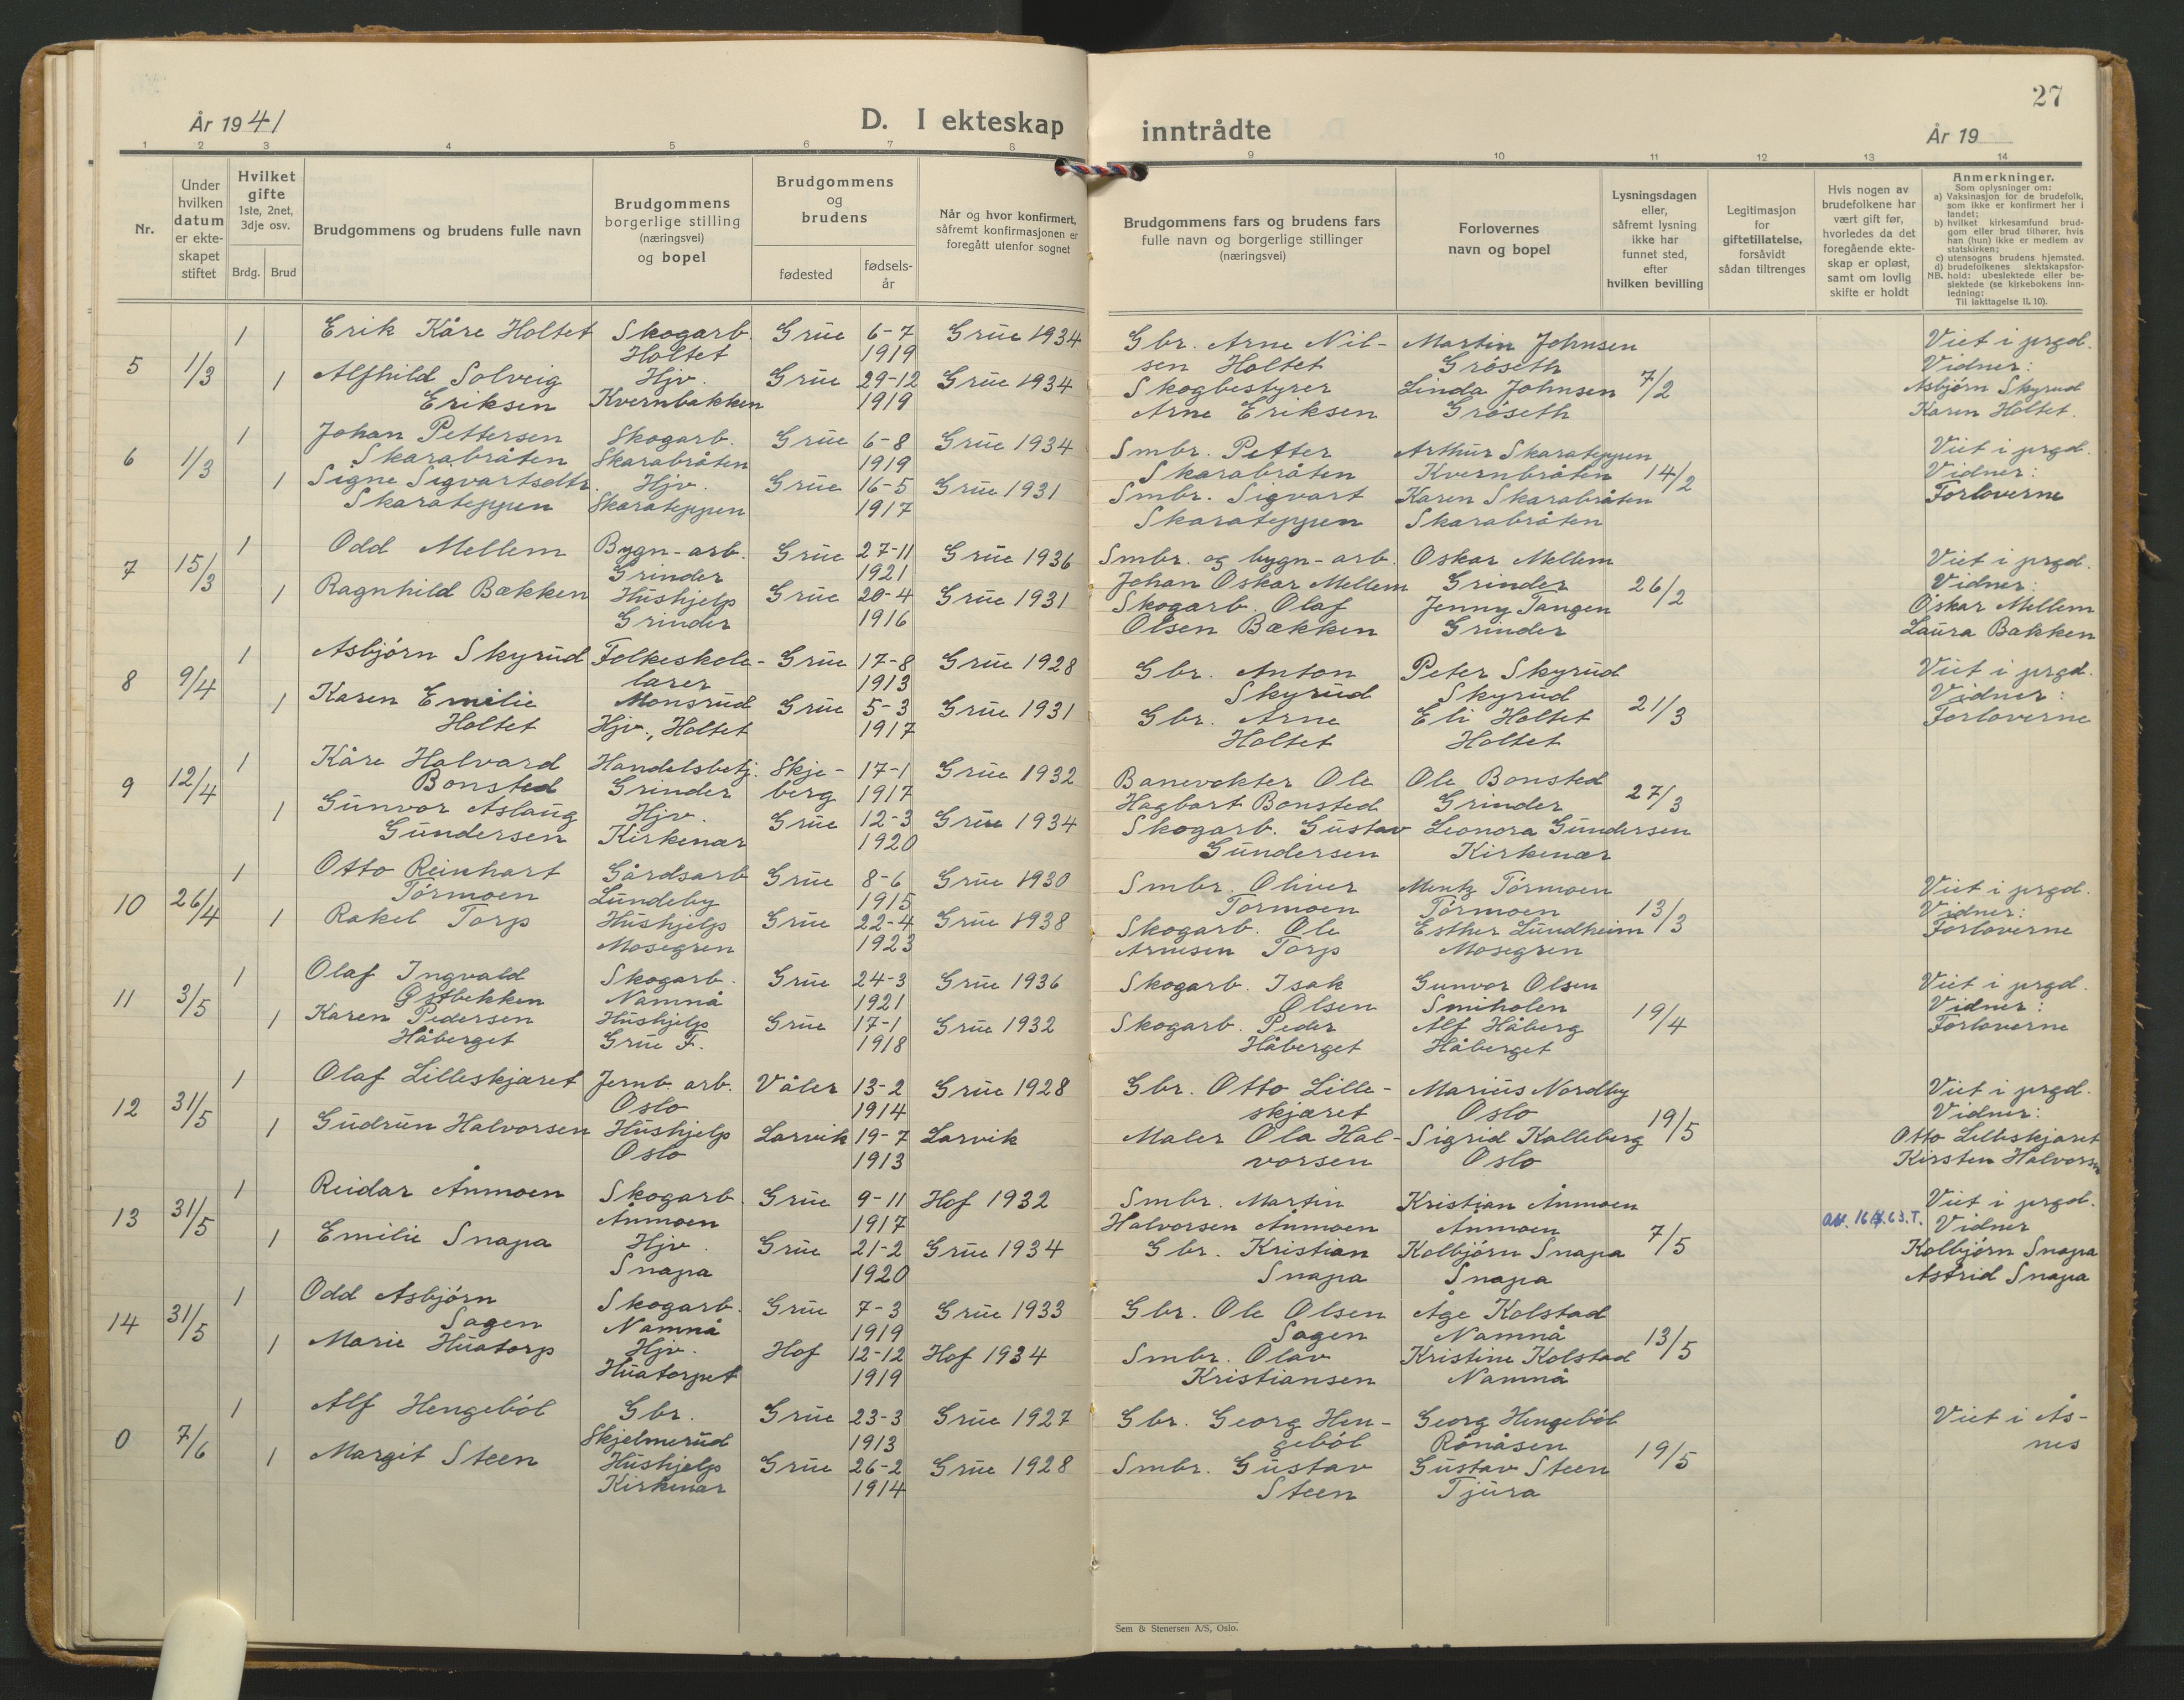 27
År 1941
D. I ekteskap inntrådte
År 19
1 2 3 4 5 6 7 8 9 10 11 12 13 14
Nr.
Under hvilken datum er ekteskapet stiftet
Hvilket gifte 1ste, 2net, 3dje osv.
Brdg. Brud
Brudgommens og brudens fulle navn
Brudgommens borgerlige stilling (næringsvei) og bopel
Brudgommens og brudens
fødested
fødsels-år
Når og hvor konfirmert, såfremt konfirmasjonen er foregått utenfor sognet
Brudgommens fars og brudens fars fulle navn og borgerlige stillinger (næringsvei)
Forlovernes navn og bopel
Lysningsdagen eller, såfremt lysning ikke har funnet sted, efter hvilken bevilling
Legitimasjon for giftetillatelse, forsåvidt sådan tiltrenges
Hvis nogen av brudefolkene har vært gift før, hvorledes da det foregående ekteskap er opløst, samt om lovlig skifte er holdt
Anmerkninger.
Som oplysninger om:
a) Vaksinasjon for de brudefolk, som ikke er konfirmert her i landet;
b) hvilket kirkesamfund brudgom eller brud tilhører, hvis han (hun) ikke er medlem av statskirken;
c) utensogns brudens hjemsted.
d) brudefolkenes slektskapsforhold: ubeslektede eller beslektede (se kirkebokens innledning:
NB.
Til iakttagelse II. 10).
5 1/3 1 Erik Kåre Holtet Skogarb. Grue 6-7 Grue 1934 Gbr. Arne Nil- Martin Johnsen Viet i prgd.
Holtet 1919 sen Holtet Gröseth Vidner:
1 Alfhild Solveig Hjv. Grue 29-12 Grue 1934 Skogbestyrer Linda Johnsen 7/2 Asbjörn Skyrud
Eriksen Kvernbakken 1919 Arne Eriksen Gröseth Karen Holtet.
6 1/3 1 Johan Pettersen Skogarb. Grue 6-8 Grue 1934 Smbr. Petter Arthur Skarateppen Viet i prgd.
Skarabråten Skarabråten 1919 Skarabråten Kvernbråten 14/2 Vidner:
1 Signe Sigvartsdtr. Hjv. Grue 16-5 Grue 1931 Smbr. Sigvart Karen Skarabråten Forloverne
Skarateppen Skarateppen 1917 Skarateppen Skarabråten
7 15/3 1 Odd Mellem Bygn-arb. Grue 27-11 Grue 1936 Smbr. og bygn-arb. Oskar Mellem Viet i prgd.
Grinder 1921 Johan Oskar Mellem Grinder 26/2 Vidner:
1 Ragnhild Bækken Hushjelp Grue 20-4 Grue 1931 Skogarb. Olaf Jenny Tangen Oskar Mellem
Grinder 1916 Olsen Bækken Grinder Laura Bakken
8 9/4 1 Asbjörn Skyrud Folkeskole- Grue 17-8 Grue 1928 Gbr. Anton Peter Skyrud Viet i prgd.
lærer 1913 Skyrud Skyrud Vidner:
1 Karen Emilie Monsrud Grue 5-3 Grue 1931 Gbr. Arne Eli Holtet 21/3 Forloverne
Holtet Hjv., Holtet 1917 Holtet Holtet
9 12/4 1 Kåre Halvard Handelsbetj. Skje- 17-1 Grue 1932 Banevokter Ole Ole Bonsted
Bonsted Grinder berg 1917 Hagbart Bonsted Grinder 27/3
1 Gunvor Aslaug Hjv. Grue 12-3 Grue 1934 Skogarb. Gustav Leonora Gundersen
Gundersen Kirkenær 1920 Gundersen Kirkenær
10 26/4 1 Otto Reinhart Gårdsarb Grue 8-6 Grue 1930 Smbr. Oliver Mentz Törmoen Viet i prgd.
Törmoen Lundeby 1915 Tormoen Törmoen 13/3 Vidner:
1 Rakel Torp Hushjelp Grue 22-4 Grue 1938 Skogarb. Ole Esther Lundheim Forloverne
Mosegren 1923 Arnesen Torp Mosegren
11 3/5 1 Olaf Ingvald Skogarb. Grue 24-3 Grue 1936 Skogarb. Isak Gunvor Olsen Viet i prgd.
Östbekken Namnå 1921 Olsen Smiholen Vidner:
1 Karen Pedersen Hushjelp Grue 17-1 Grue 1932 Skogarb. Peder Alf Håberg 19/4 Forloverne
Håberget Grue F. 1918 Håberget Håberget
12 31/5 1 Olaf Lilleskjæret Jernb. arb. Våler 13-2 Grue 1928 Gbr. Otto Lille- Marius Nordby Viet i prgd.
Oslo 1914 skjæret Oslo Vidner:
1 Gudrun Halvorsen Hushjelp Larvik 19-7 Larvik Maler Ola Hal- Sigrid Kalleberg 19/5 Otto Lilleskjæret
Oslo 1913 vorsen Oslo Kirsten Halvorsen
13 31/5 1 Reidar Ånmoen Skogarb. Grue 9-11 Hof 1932 Smbr. Martin Kristian Ånmoen Viet i prgd.
Ånmoen 1917 Halvorsen Ånmoen Ånmoen Vidner
1 Emilie Snapa Hjv. Grue 21-2 Grue 1934 Gbr. Kristian Kolbjörn Snapa 7/5 Kolbjörn Snapa
Snapa 1920 Snapa Snapa Astrid Snapa
14 31/5 1 Odd Asbjörn Skogarb. Grue 7-3 Grue 1933 Gbr. Ole Olsen Åge Kolstad
Sagen Namnå 1919 Sagen Namnå 13/5
1 Marie Huatorp Hjv. Hof 12-12 Hof 1934 Smbr. Olav Kristine Kolstad
Huatorpet 1919 Kristiansen Namnå
0 7/6 1 Alf Hengeböl Gbr. Grue 23-3 Grue 1927 Gbr. Georg Hen- Georg Hengeböl Viet i Ås-
Skjelmerud 1913 geböl Rönåsen nes
1 Margit Steen Hushjelp Grue 26-2 Grue 1928 Smbr. Gustav Gustav Steen 19/5
Kirkenær 1914 Steen Tjura
Sem & Stenersen A/S, Oslo.